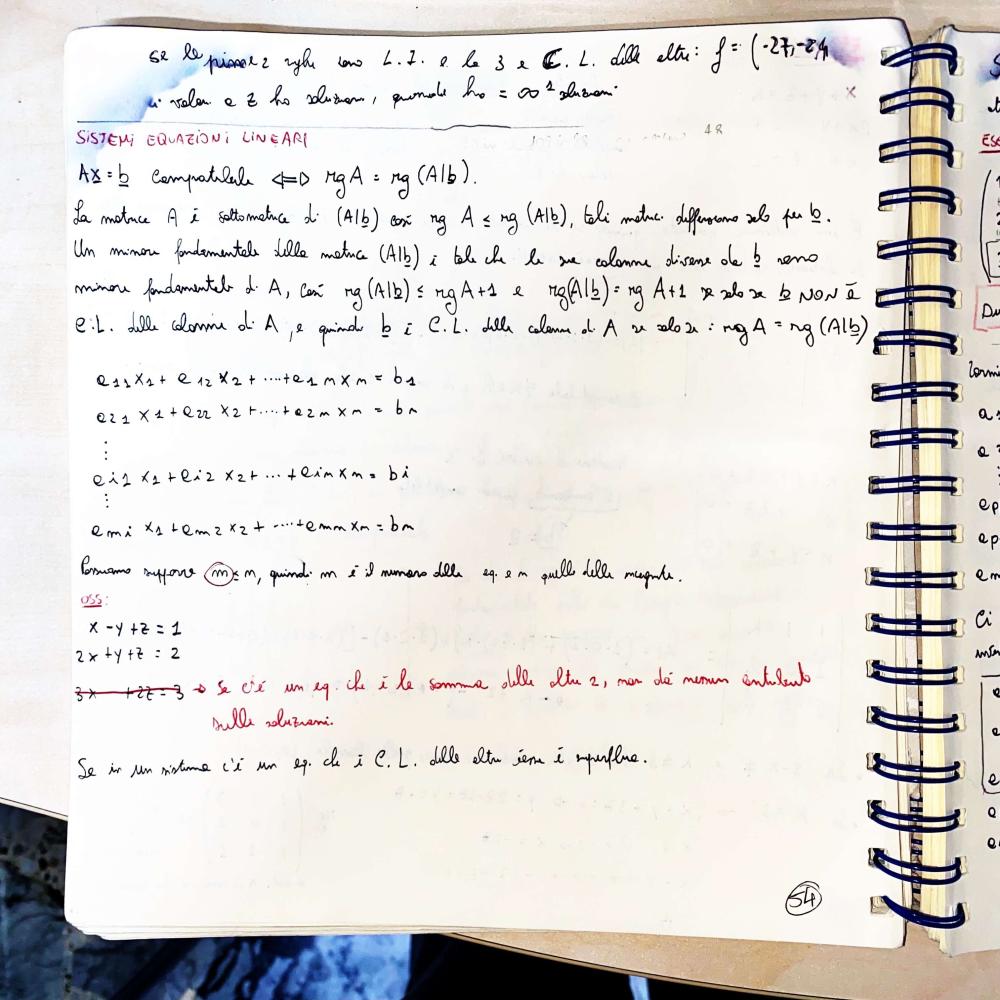 se le prime 2 righe sono L.I. e la 3 è C.L. delle altre: f = (-2z, -z,
valori a z ho soluzioni, quindi ho = ∞¹ soluzioni.
48
SISTEMI EQUAZIONI LINEARI
Ax = b compatibile ⇔ rg A = rg (A|b).
La matrice A è sottomatrice di (A|b) così rg A ≤ rg (A|b), tali matrici differiscono solo per b.
Un minore fondamentale della matrice (A|b) è tale che le sue colonne diverse da b sono
minore fondamentale di A, così rg (A|b) ≤ rg A+1 e rg(A|b) = rg A+1 se solo se b NON È
C.L. delle colonne di A, e quindi b è C.L. delle colonne di A se solo se: rg A = rg (A|b)
a11 x1 + a12 x2 + ....+ a1n xn = b1
a21 x1 + a22 x2 +....+ a2n xn = bn
⋮
ai1 x1 + ai2 x2 + ... + ain xn = bi
⋮
ami x1 + am2 x2 + ....+ amn xn = bm
Possiamo supporre m ≤ n, quindi m è il numero delle eq. e n quello delle incognite.
OSS:
x - y + z = 1
2x + y + z = 2
3x + 2z = 3 → Se c'è un eq. che è la somma delle altre 2, non dà nessun contributo
sulle soluzioni.
Se in un sistema c'è un eq. che è C.L. delle altre è superflua.
54